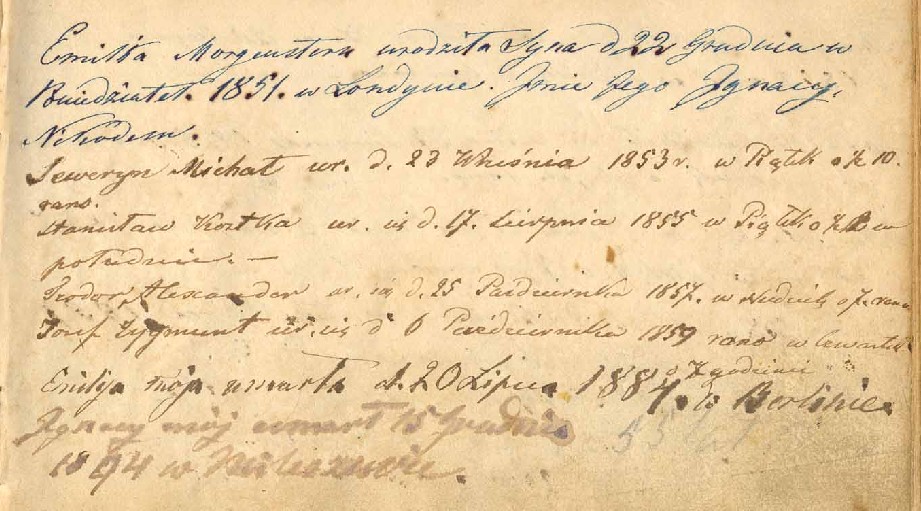 Emilka Morgenstern urodziła Syna d 22 Grudnia w
1851. w Londynie. Jmie Jego Ignacy,
Nikodem.
Seweryn Michał ur. d. 23 Wrśnia 1853 r. w Piątek o 10.
rano.
Stanisław Kostka ur. się d. 17. Sierpnia 1855 w Piątek o w
południe. —
Teodor, Alexander ur. się d. 25 Października 1857. w Niedzielę o rano
Józef Zygmunt ur. się d 6 Października 1859 rano w Czwartek
o godzinie
Emilja moja umarła d. 20 Lipca 1884. w Berlinie.
Ignacy mój umarł 15 Grudnia
1894 w